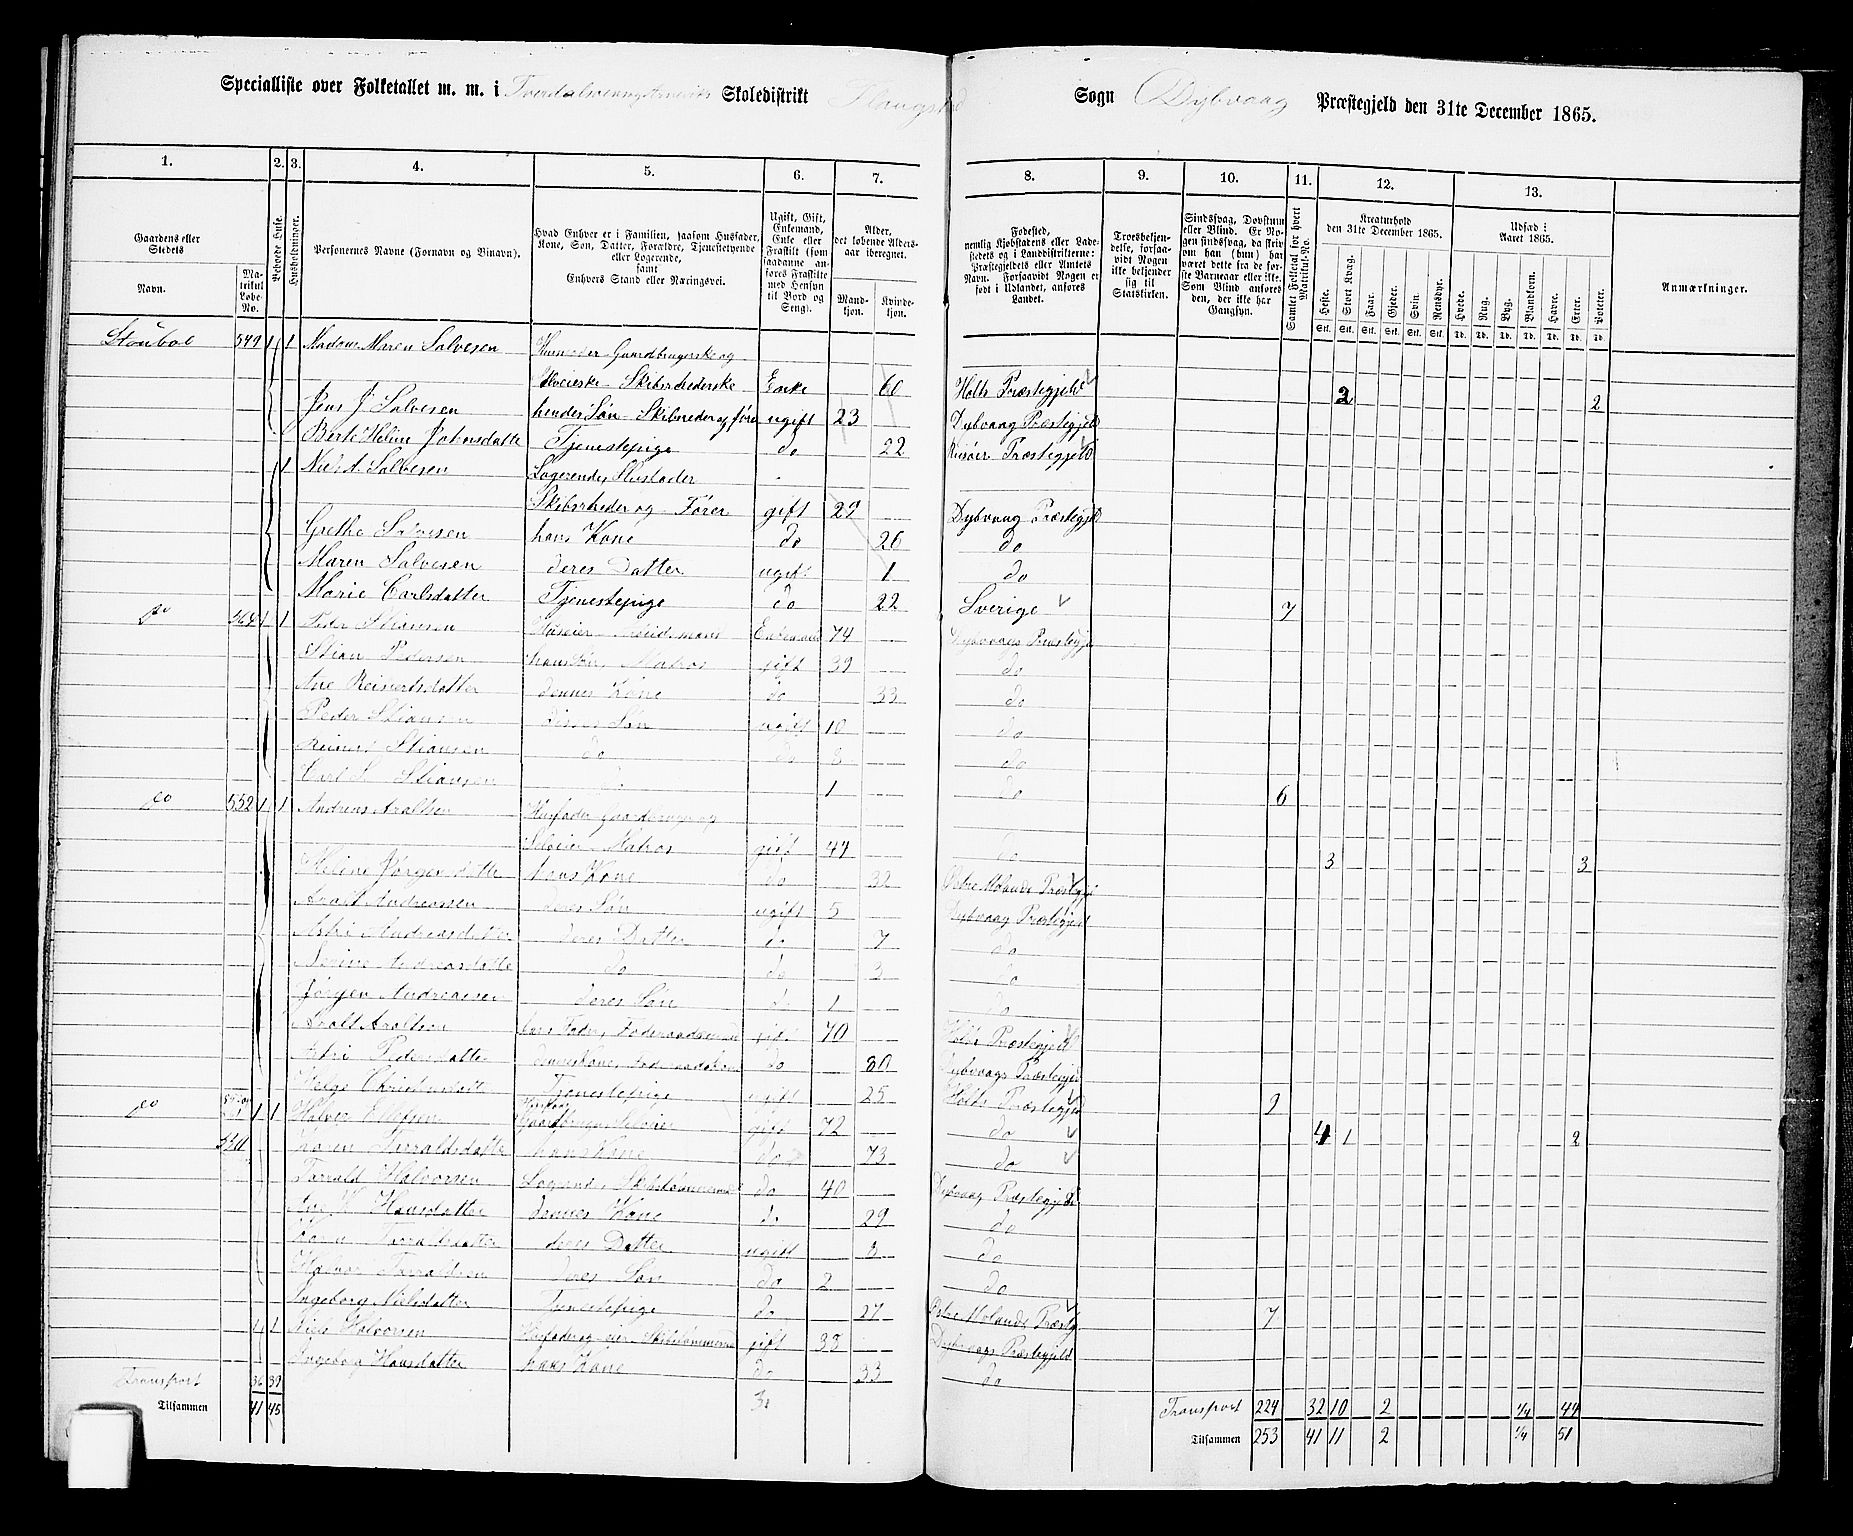 Specialliste over Folketallet m. m. i Skoledistrikt
Sogn Dybvaag Præstegjeld den 31te December 1865.
1. 2. 3. 4. 5. 6. 7. 8. 9. 10. 11. 12. 13.
Gaardens eller Stedets
Navn.
Matrikul Løbe-No.
Beboede Huse.
Husholdninger.
Personernes Navne (Fornavn og Binavn).
Hvad Enhver er i Familien, saasom Husfader, Kone, Søn, Datter, Forældre, Tjenestetyende eller Logerende,
samt
Enhvers Stand eller Næringsvei.
Ugift, Gift, Enkemand, Enke eller Fraskilt (som saadanne anføres Fraskilte med Hensyn til Bord og Seng).
Alder, det løbende Aldersaar iberegnet.
Mandkjøn.
Kvindekjøn.
Fødested,
nemlig Kjøbstadens eller Ladestedets og i Landdistrikterne: Præstegjeldets eller Amtets Navn. Forsaavidt Nogen er født i Udlandet, anføres Landet.
Troesbekjendelse, forsaavidt Nogen ikke bekjender sig til Statskirken.
Sindssvag, Døvstum eller Blind. Er Nogen sindssvag, da skriv om han (hun) har været dette fra de første Barneaar eller ikke. Som Blind anføres den, der ikke har Gangsyn.
Samlet Folketal for hvert Matrikul-No.
Kreaturhold
den 31te December 1865.
Heste. Stort Kvæg. Faar. Gjeder. Svin. Rensdyr.
Stk. Stk. Stk. Stk. Stk. Stk.
Udsæd i
Aaret 1865.
Hvede. Rug. Byg. Blandkorn. Havre. Erter. Poteter.
Td. Td. Td. Td. Td. Td. Td.
Anmærkninger.
549 1 1 Madam Maren Salvesen Gaardbrugerske og
Skibsrhederske Enke 60 Holts Præstegjeld 2 2
Jens J. Salvesen hendes Søn - Skibsreder og fører ugift 23 Dybvaag Præstegjeld
Berte Heline Johnsdatter Tjenestepige do 22 Risøer Præstegjeld
1 Niels A. Salvesen Logerende, Husfader
Skibsrheder og Fører gift 29 Dybvaag Præstegjeld
Grethe Salvesen hans Kone do 26 do
Maren Salvesen deres Datter ugift 1 do
Marie Carlsdatter Tjenestepige do 22 Sverige 7
do 564 1 1 Peder Stiansen Enkemand 74 Dybvaags Præstegjeld
Stian Pedersen hans Søn, Matros gift 39 do
Ane Reinertsdatter dennes Kone do 33 do
Peder Stiansen deres Søn ugift 10 do
Reinert Stiansen do do 8 do
Carl S. Stiansen do 1 do 6
do 552 1 1 Andreas Araltsen Husfader Gaardbruger og
Selveier Matros gift 44 do 3 3
Helene Jørgensdatter hans Kone do 32 Østre Molands Præstegjeld
Aralt Andreassen deres Søn ugift 5 Dybvaag Præstegjeld
Astri Andreasdatter deres Datter do 7 do
Nerine Andreasdatter do do 3 do
Jørgen Andreassen deres Søn do 1 do
Aralt Araltsen hans Fader, Foderaadsmand gift 70 Holts Præstegjeld
Astri Pedersdatter dennes Kone, do 80 Dybvaags Præstegjeld
Helge Christensdatter Tjenestepige ugift 25 Holts Præstegjeld 9
do 1 1 Halvor Ellefsen Husfader
Gaardbruger Selveier gift 72 do 4 1 2
Karen Tarraldsdatter hans Kone do 73 do
Tarrald Halvorsen Logerende, Skibstømmermand do 40 Dybvaag Præstegjeld
Ane K. Hansdatter dennes Kone do 29 do
Karen Tarraldsdatter deres Datter ugift 8 do
Halvor Tarraldsen deres Søn do 2 do
Ingeborg Nielsdatter Tjenestepige do 27 Østre Molands Præstg. 7
1 1 Niels Halvorsen gift 33 Dybvaags Præstegjeld
Ingeborg Hansdatter hans Kone do 33 do
Transport 36 39 Transport 224 32 10 2 1/4 44
Tilsammen 41 45 Tilsammen 253 41 11 2 1/4 51